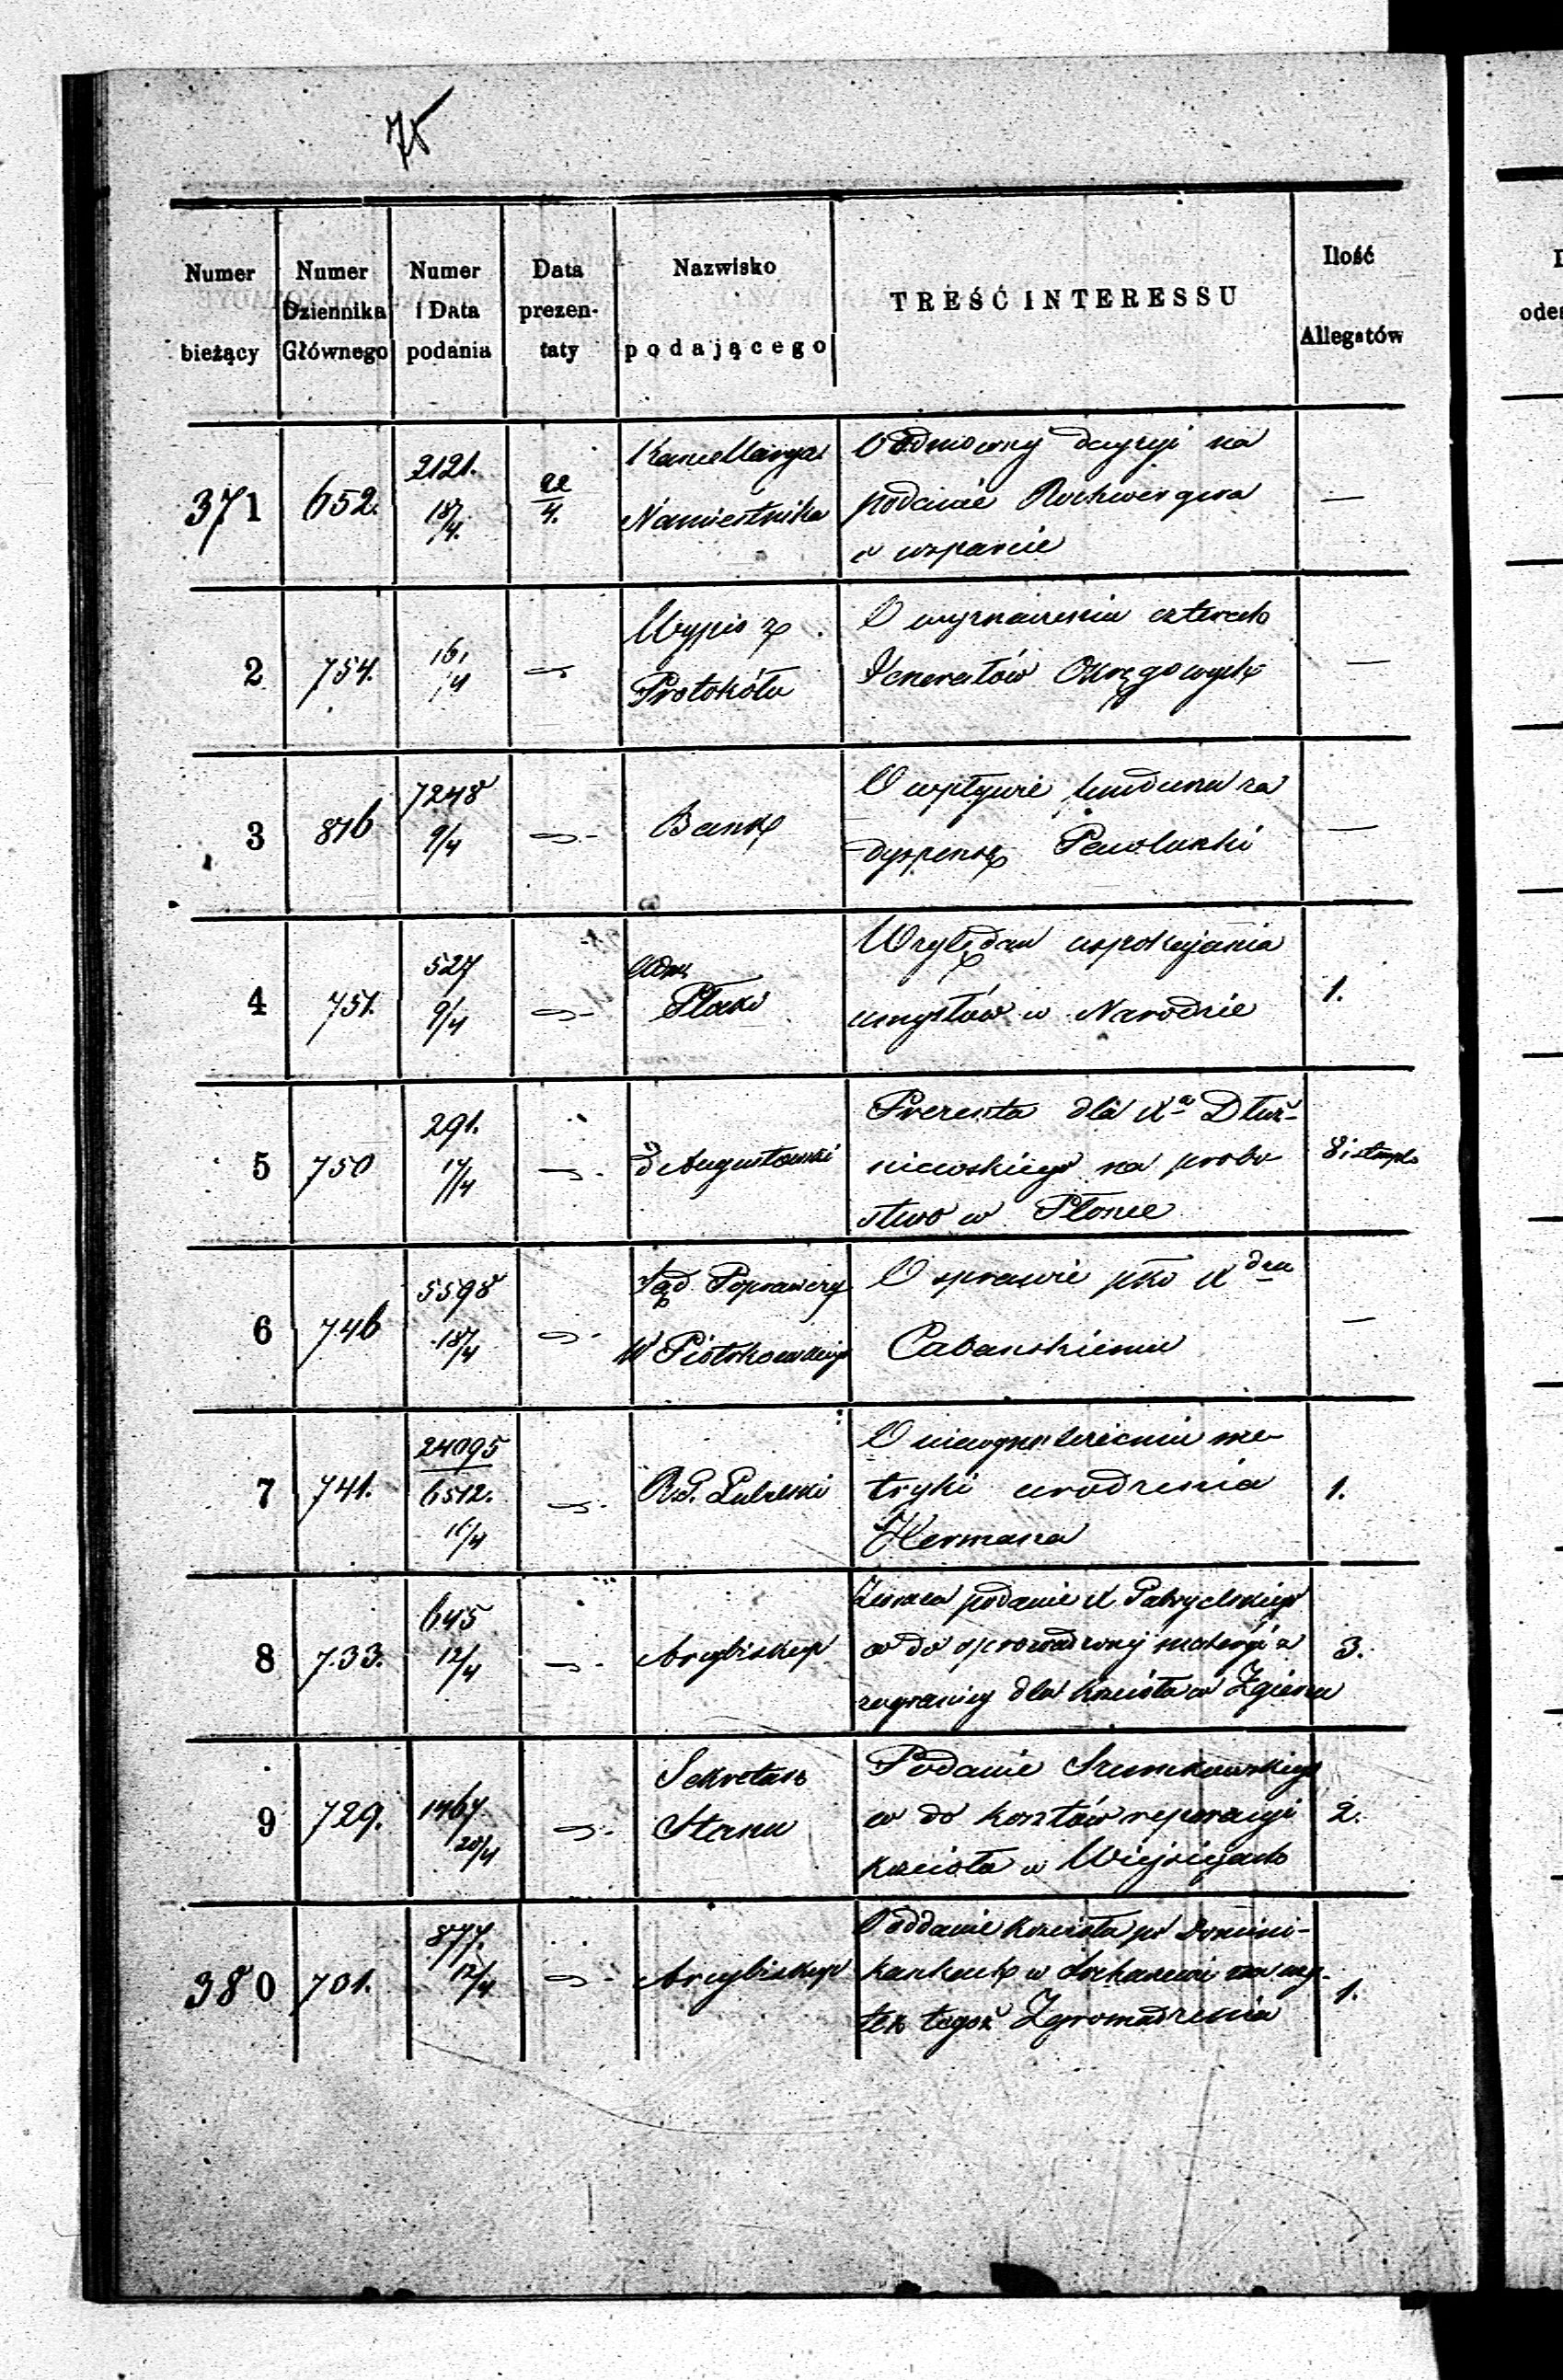 75
Numer bieżący | Numer Dziennika Głównego | Numer i Data podania | Data prezentaty | Nazwisko podającego | TREŚĆ INTERESSU | Ilość Allegatów
371 | 652. | 2121. 18/4. | 22/4. | Kancellarya Namiestnika | O odmowny decyzyi na
podanie
o wsparcie | —
2 | 754. | 16/4 | — | Wypis z Protokółu | O wyznaczeniu czterech
Generałów Okręgowych | —
3 | 876 | 7248 9/4 | — | Bank | O wpływie funduszu za
dyspensę Pawoluszki | —
4 | 751. | 527 9/4 | — | Płocki | Względem uspokojenia
umysłów w Narodzie | 1.
5 | 750 | 291. 17/4 | — | Augustowski | Prezenta dla Xa Dłuż-
niewskiego na probo
stwo w Płonce | 8 i stempla
6 | 746 | 5598 18/4 | — | Sąd Poprawczy W Piotrkowskiego | O sprawie pko X dzu
Cabanskiemu | —
7 | 741. | 24095 6512. 16/4 | — | R.G. Lubelski | O me-
tryki urodzenia
Hermana | 1.
8 | 733. | 645 12/4 | — | Arcybiskup | Zwraca podanie X Patryckiego
co do sprowadzonej materyi z
zagranicy dla kościoła w Zgierzu | 3.
9 | 729. | 1467 20/4 | — | Sekretarz Stanu | Podanie Szumkowskiego
co do kosztów reperacyi
kościoła w Wiejsiejach | 2.
380 | 701. | 877. 12/4 | — | Arcybiskup | O oddanie kościoła po Domini-
kankach w Sochaczewie na uży-
tek tegoż Zgromadzenia | 1.